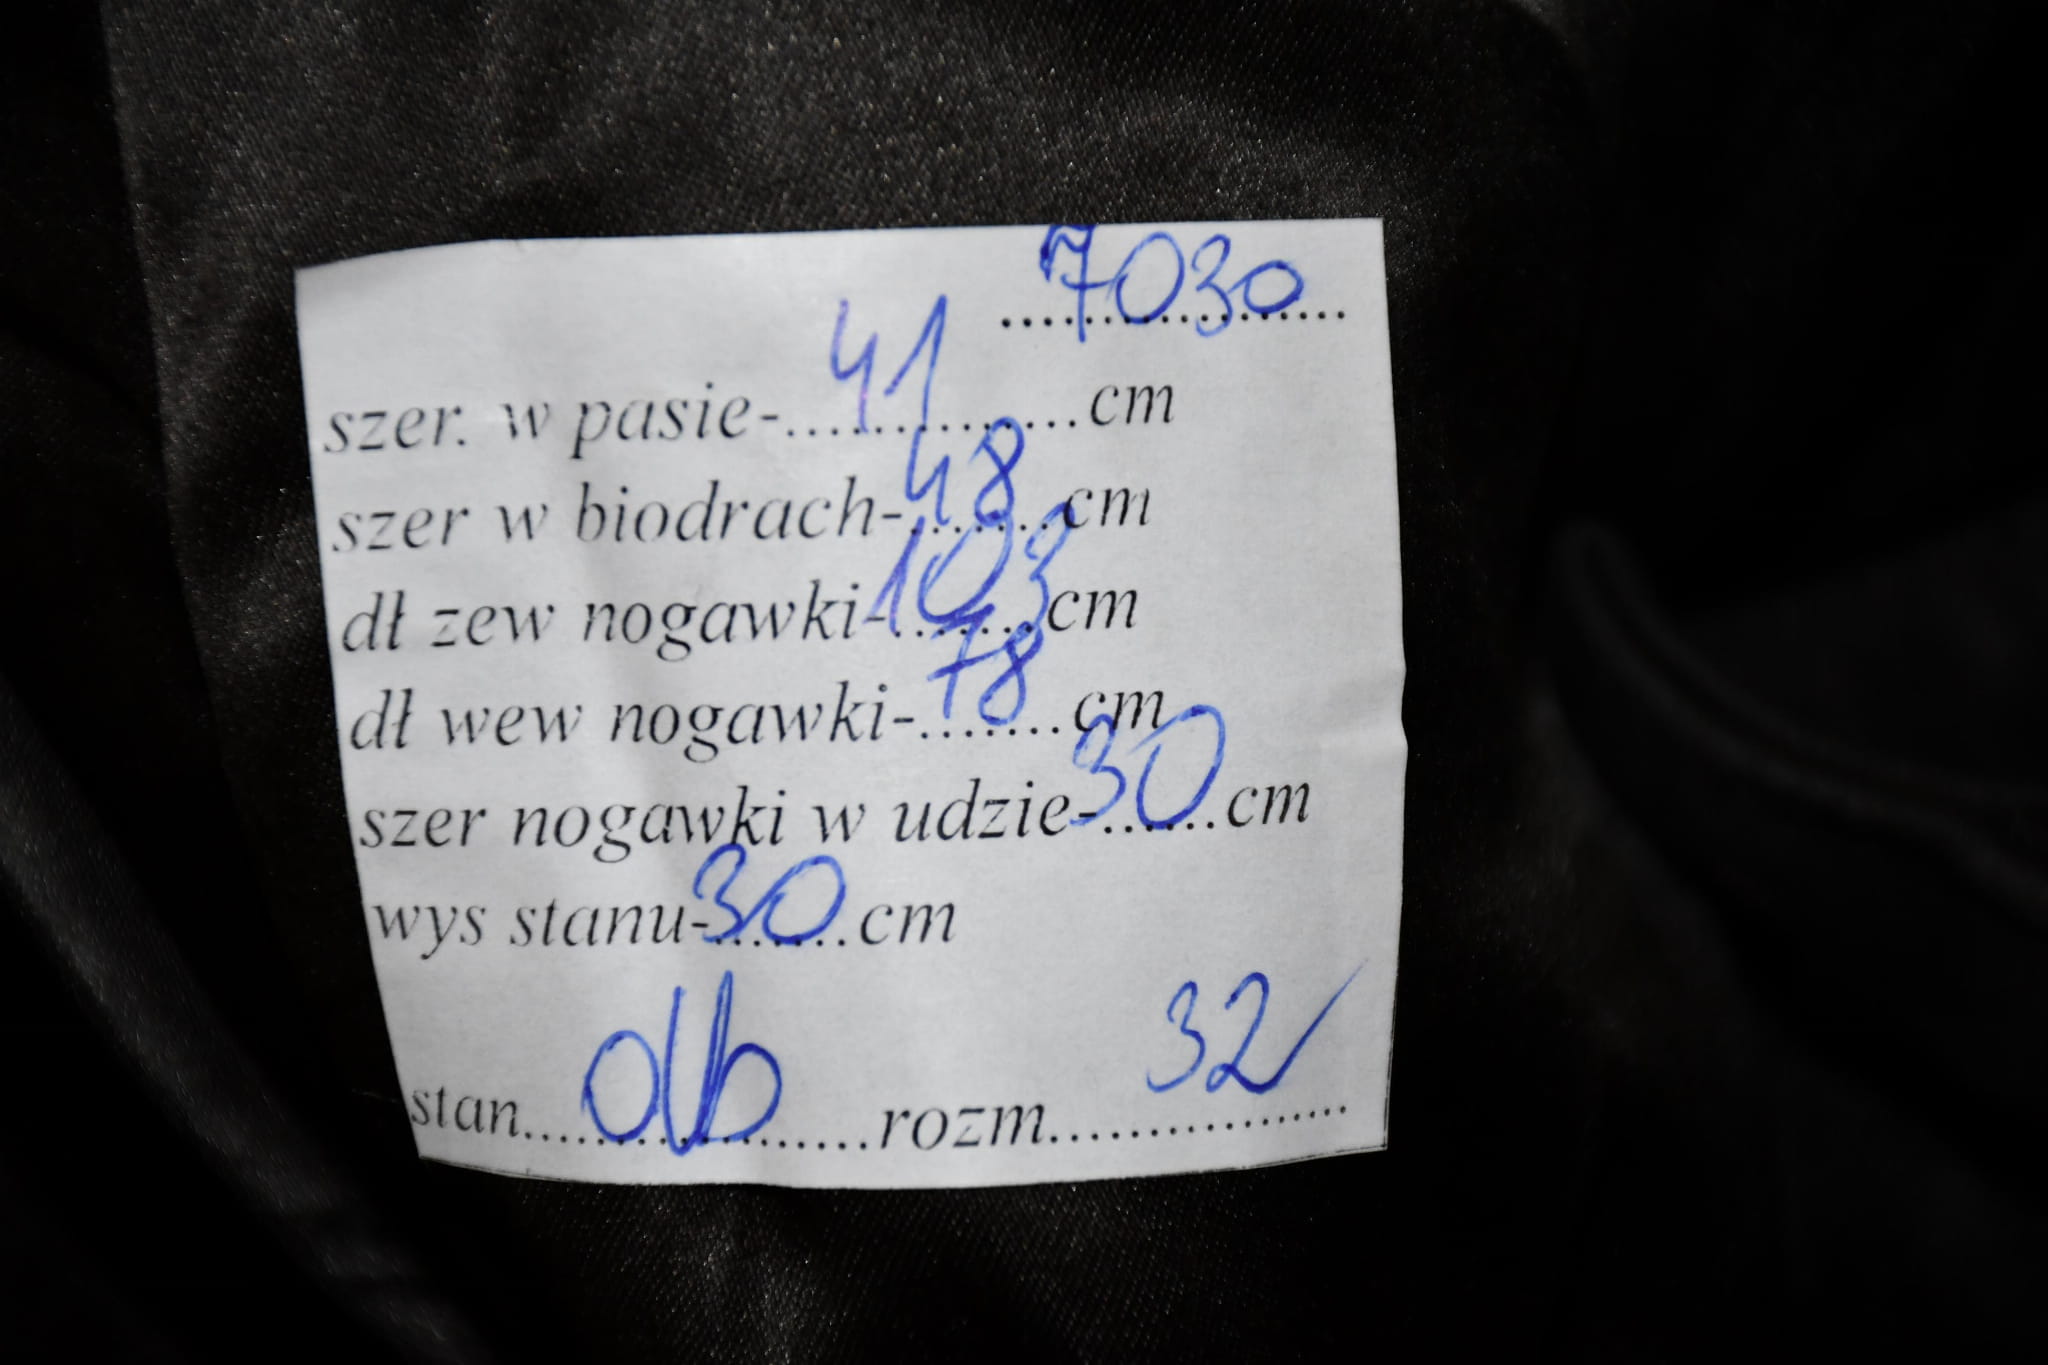 7030
szer. w pasie-41cm
szer w biodrach-48cm
dł zew nogawki-103cm
dł wew nogawki-78cm
szer nogawki w udzie-30cm
wys stanu-30cm
stan db rozm 32